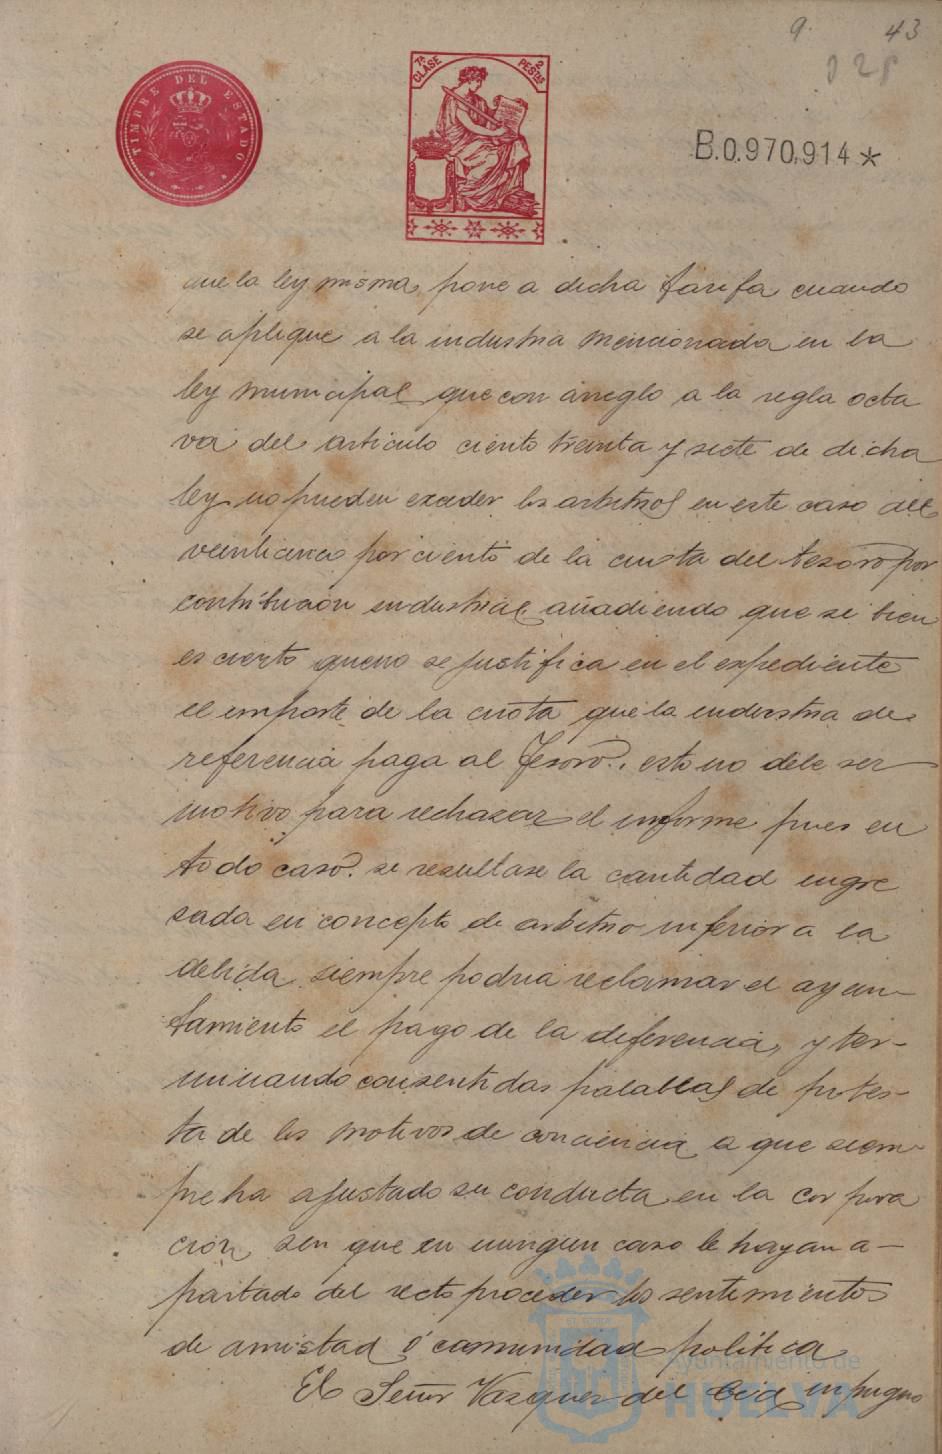 9. 43
028
TIMBRE DEL ESTADO
7ª CLASE 2 PESTAS
B.0.970,914*
que la ley misma, pone a dicha tarifa cuando
se aplique a la industria mencionada en la
ley municipal que con arreglo a la regla octa
va del articulo ciento treinta y siete de dicha
ley no pueden exceder los arbitrios en este caso del
veinticinco por ciento de la cuota del tesoro por
contribución industrial, añadiendo que si bien
es cierto que no se justifica en el expediente
el importe de la cuota que la industria de
referencia paga al Tesoro, esto no debe ser
motivo para rechazar el informe pues en
todo caso si resultase la cantidad ingre
sada en concepto de arbitrio inferior a la
debida, siempre podria reclamar el ayun-
tamiento el pago de la diferencia, y ter-
minando con sentidas palabras de protes-
ta de los motivos de conciencia a que siem-
pre ha ajustado su conducta en la corpora
cion, sin que en ningun caso le hayan a-
partado del recto proceder los sentimientos
de amistad ó comunidad politica
El Señor Vazquez del Cid, impugno
Ayuntamiento de
HUELVA